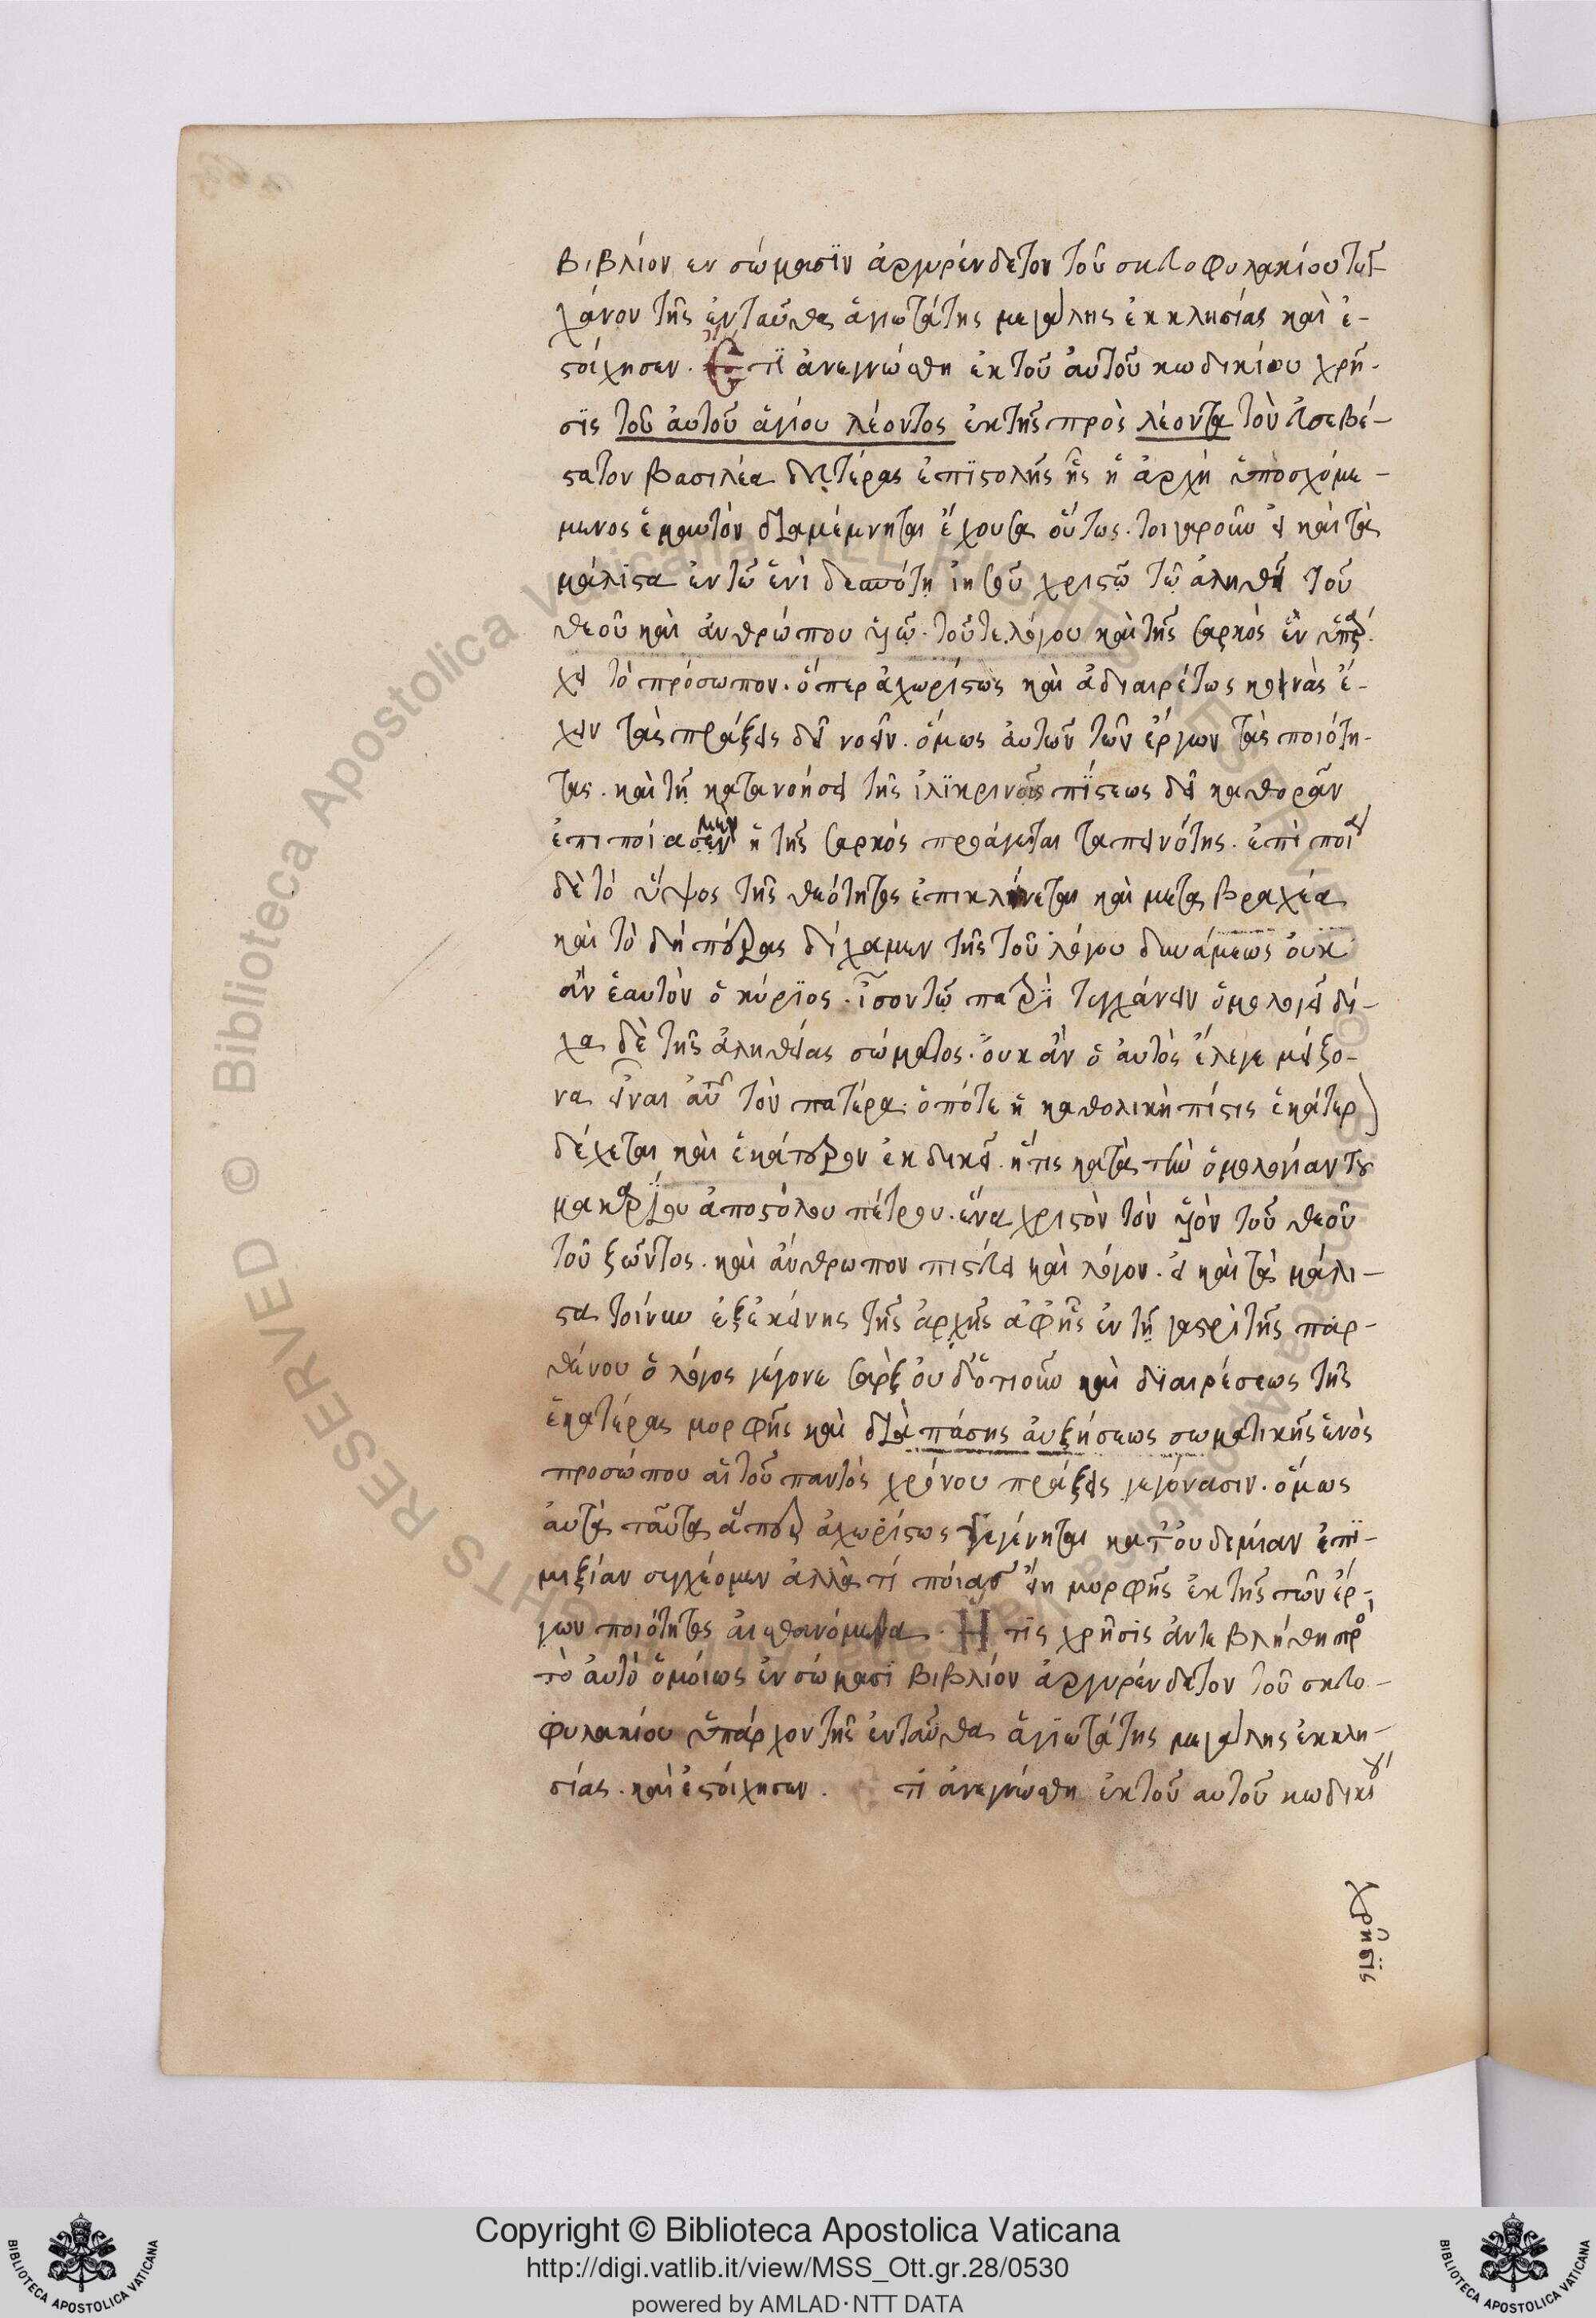 βιβλίον εν σώμασϊν ἀργυρένδετον τοῦ σκευοφυλακίου τυγ-
χάνον τῆς ἐνταῦθα ἁγιωτάτης μεγάλης ἐκκλησίας καὶ ἐ-
στοίχησεν. Ἔτι ἀνεγνώσθη ἐκ τοῦ ἀυτοῦ κωδικίου χρῆ-
σϊς τοῦ ἀυτοῦ ἁγίου λέοντος ἐκ τῆς πρὸς λέοντα τὸν ἐυσεβέ-
στατον βασιλέα δευτέρας ἐπϊστολῆς ἧς ἡ ἀρχὴ ὑποσχόμε-
μενος ἐμαυτὸν διαμέμνηται ἔχουσα οὕτως. τοιγαροῦν εἰ καὶ τὰ
μάλιστα ἐν τῶ ἑνὶ δεσπότη ἰησοῦ χριστῶ τῶ ἀληθεῖ τοῦ
θεοῦ καὶ ἀνθρώπου υἱῶ. τοῦτε λόγου καὶ τῆς σαρκὸς ἓν ὑπάρ-
χει τὸ πρόσωπον. ὅπερ ἀχωρίστως καὶ ἀδιαιρέτως κοινὰς ἔ-
χειν τὰς πράξεις δεῖ νοεῖν. ὅμως ἀυτῶν τῶν ἔργων τὰς ποιότη-
τας. καὶ τῆ κατανοήσει τῆς ἰλϊκρινοῦς πίστεως δεῖ καθορᾶν
ἐπι ποία μὲν ἡ τῆς σαρκὸς προάγεται ταπεινότης. ἐπὶ ποῖα
δὲ τὸ ὕψος τῆς θεότητος ἐπικλίνεται καὶ μετα βραχέα
καὶ τὸ δή πότερας δίχα μεν τῆς τοῦ λόγου δυνάμεως ὀυκ
ἂν ἑαυτὸν ὁ κύρϊος. ἶσον τῶ πατρὶ τυγχάνειν ὁμολογεῖ δί-
χα δὲ τῆς ἀληθείας σώματος. ὀυκ ἂν ὁ ἀυτὸς ἔλεγε μείζο-
να εἶναι ἀυτοῦ τὸν πατέρα. ὁπότε ἡ καθολικὴ πίστις ἑκάτερον
δέχεται καὶ ἑκάτερον ἐκδικεῖ. ἥτις κατὰ τὴν ὁμολογίαν τοῦ
μακαρίου ἀποστόλου πέτρου. ἕνα χριστὸν τὸν υἱὸν τοῦ θεοῦ
τοῦ ζῶντος. καὶ ἄνθρωπον πιστεύει καὶ λόγον. εἰ καὶ τὰ μάλι-
στα τοίνυν ἐξ ἐκείνης τῆς ἀρχῆς ἀφῆς ἐν τῆ γαστρὶ τῆς παρ-
θένου ὁ λόγος γέγονε σὰρξ ὀυδ' ὁτιοῦν καὶ δϊαιρέσεως τῆς
ἑκατέρας μορφῆς καὶ διὰ πάσης ἀυξήσεως σωματικῆς ἑνὸς
προσώπου αἱ τοῦ παντὸς χρόνου πράξεις γεγόνασιν. ὅμως
ἀυτὰ ταῦτα ἅπερ ἀχωρίστως γεγένηται κατ' ὀυδεμίαν ἐπϊ-
μιξίαν συγχέομεν ἀλλὰ τί ποίας εἴη μορφῆς ἐκ τῆς τῶν ἔρ-
γων ποιότητος ἀισθανόμεθα. Ἥτις χρῆσις ἀντεβλήθη πρὸς
τὸ ἀυτὸ ὁμοίως ἐν σώμασϊ βιβλίον ἀργυρένδετον τοῦ σκευο-
φυλακίου ὑπάρχον τῆς ἐνταῦθα ἁγϊωτάτης μεγάλης ἐκκλη-
σίας. καὶ ἐστοίχησεν. τι ἀνεγνώσθη ἐκ τοῦ αυτοῦ κωδικίου
χρῆσϊς
Copyright © Biblioteca Apostolica Vaticana
http://digi.vatlib.it/view/MSS_Ott.gr.28/0530
powered by AMLAD·NTT DATA